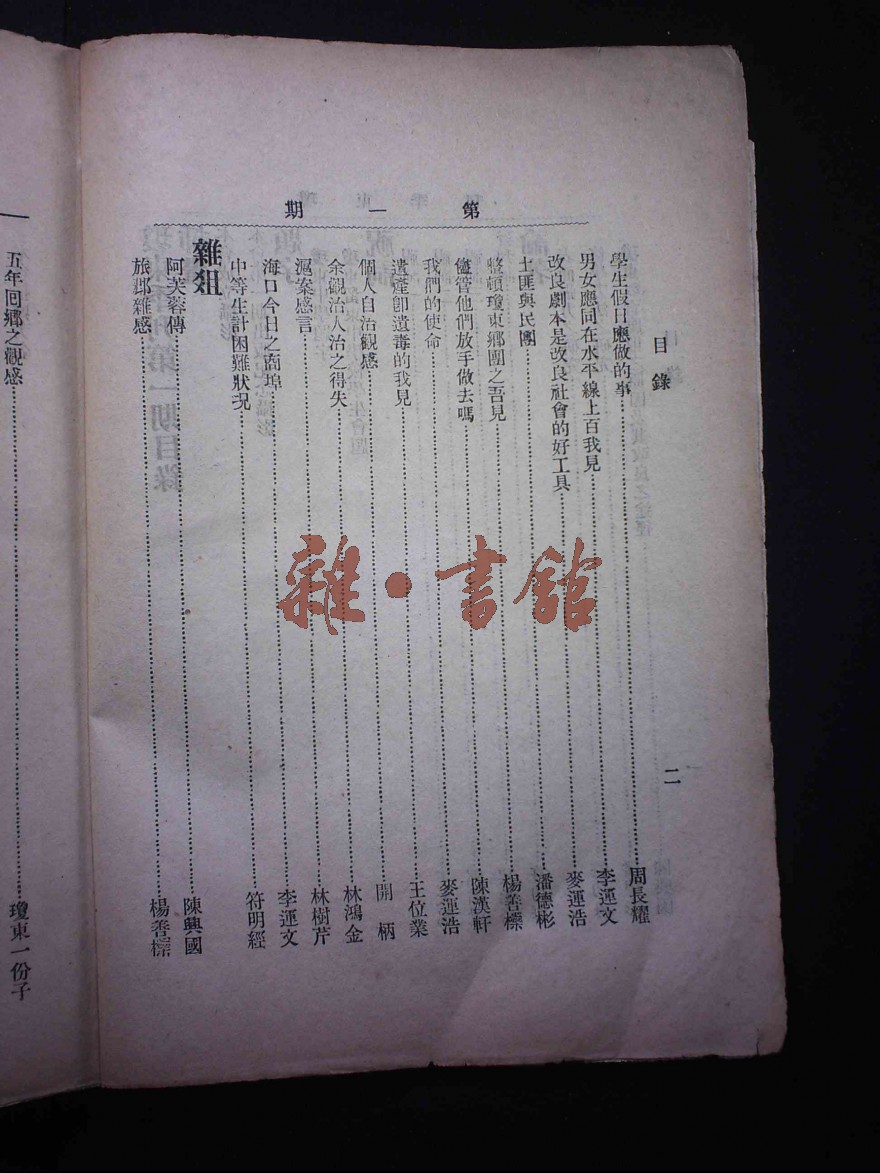 目錄
二
第一期
學生假日應做的事 周長耀
男女應同在水平線上百我見 李運文
改良劇本是改良社會的好工具 麥運浩
土匪與民團 潘德彬
整頓瓊東鄉團之吾見 楊善標
儘管他們放手做去嗎 陳漢軒
我們的使命 麥運浩
遺產卽遺毒的我見 王位業
個人自治觀感 開柄
余觀治人治之得失 林鴻金
滬案感言 林樹芹
海口今日之商埠 李運文
中等生計困難狀况 符明經
雜俎
阿芙蓉傳 陳興國
旅郡雜感 楊善標
五年回鄉之觀感 瓊東一份子
雜·書館